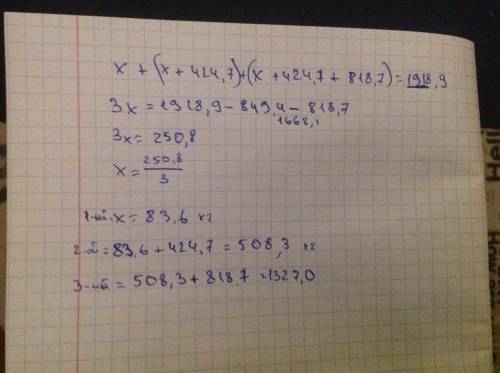 x + (x + 424,7) + (x + 424,7 + 818,7) = 1918,9
3x = 1918,9 - 849,4 - 818,7
1668,1
3x = 250,8
x = 250,8 / 3
1-ый x = 83,6 кг
2-й = 83,6 + 424,7 = 508,3 кг
3-ий = 508,3 + 818,7 = 1327,0